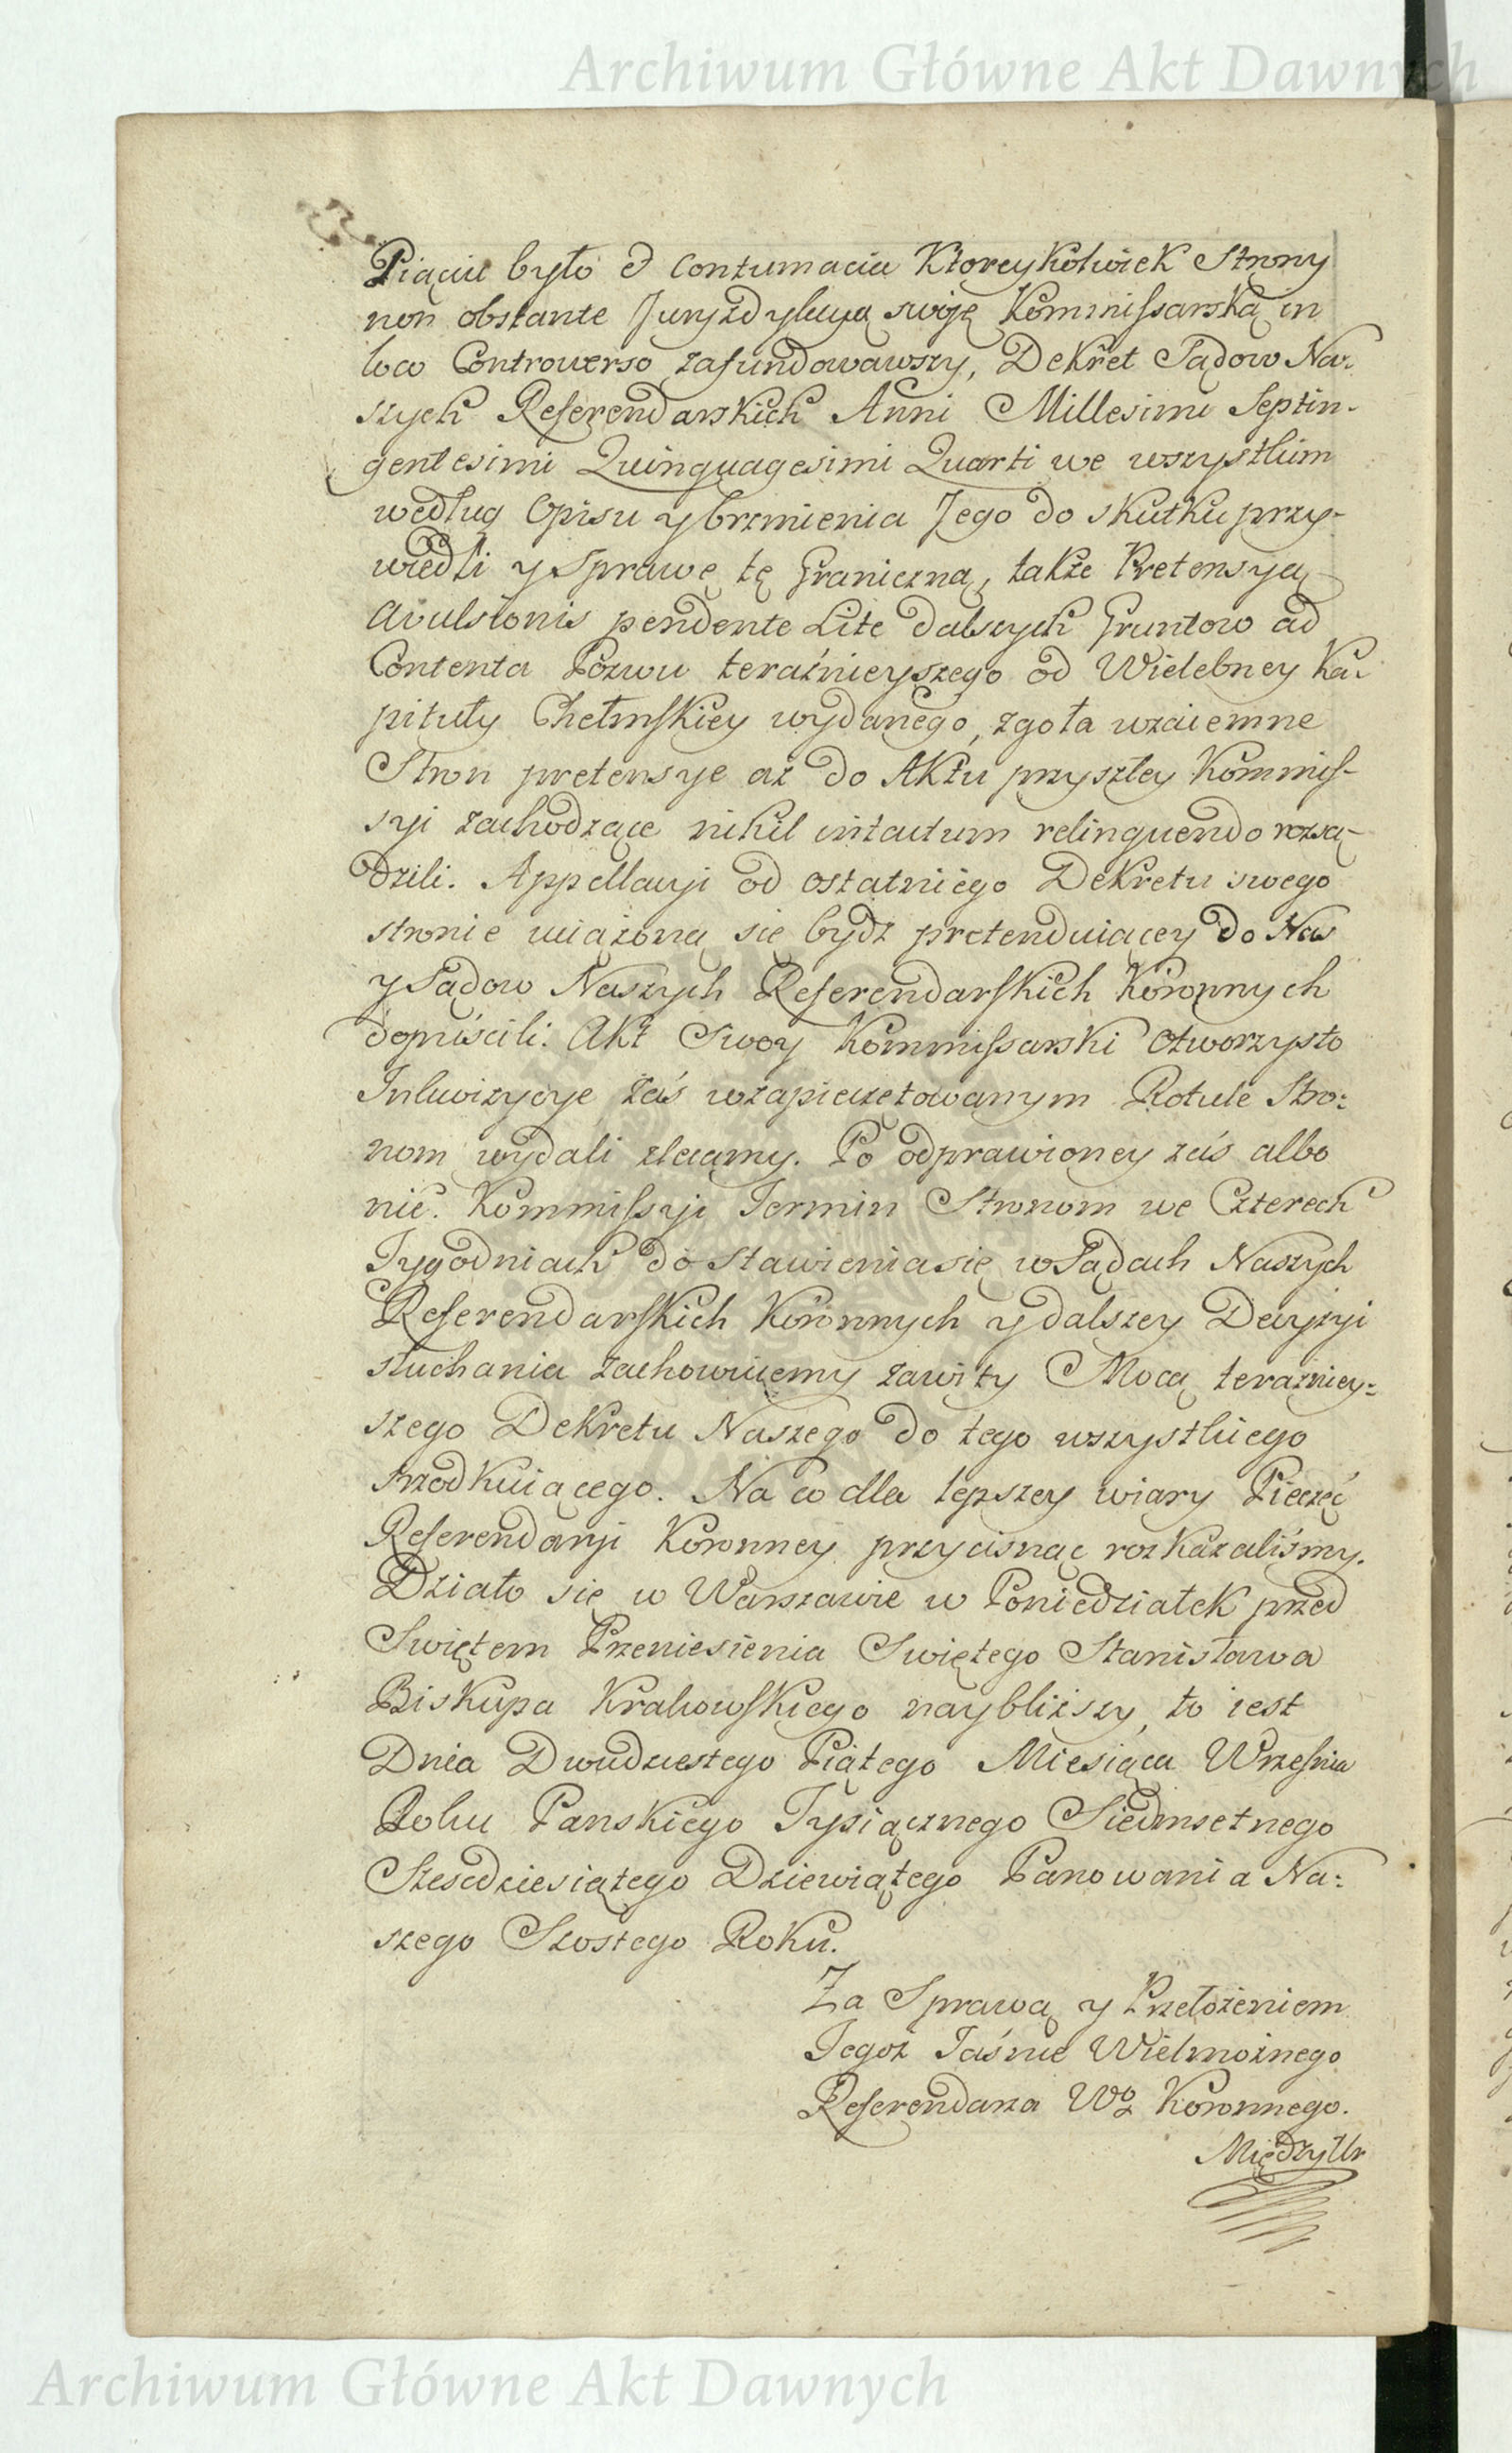 Archiwum Główne Akt Dawnych
Piąciu było et contumacia Ktoreykolwiek Strony
non obstante Juryzdykcyą swoję Kommissarską in
loco Controverso zafundowawszy, Dekret Sądow Na:
szych Referendarskich Anni Millesimi Septin-
gentesimi Quinquagesimi Quarti we wszystkim
według Opisu y brzmienia Jego do skutku przy-
wiedli y Sprawę tę Graniczną, także Pretensyą
avulsionis pendente Lite dalszych Gruntow ad
Contenta Pozwu teraźnieyszego od Wielebney Ka:
pituły Chełmskiey wydanego, zgoła wzaiemne
Stron pretensye aż do Aktu przyszłey Kommis-
syi zachodzące nihil intactum relinquendo rozsą-
dzili. Appellacyi od ostatniego Dekretu swego
stronie uciążoną się bydz pretenduiącey do Nas
y Sądow Naszych Referendarskich Koronnych
dopuścili. Akt Swoy Kommissarski otworzysto
Inkwizycye zaś w zapieczętowanym Rotule Stro:
nom wydali zlecamy. Po odprawioney zaś albo
nie. Kommissyi Termin Stronom we Czterech
Tygodniach do Stawienia się w Sądach Naszych
Referendarskich Koronnych y dalszey Decyzyi
słuchania zachowuiemy zawity Mocą teraźniey:
szego Dekretu Naszego do tego wszystkiego
srzodkuiącego. Na co dla lepszey wiary Pieczęć
Referendaryi Koronney przycisnąć rozkazaliśmy.
Działo się w Warszawie w Poniedziałek przed
Swiętem Przeniesienia Swiętego Stanisława
Biskupa Krakowskiego naybliższy, to iest
Dnia Dwudziestego Piątego Miesiąca Wrzesnia
Roku Panskiego Tysiącznego Siedmsetnego
Szescdziesiątego Dziewiątego Panowania Na:
szego Szostego Roku.
Za Sprawą y Przełożeniem
Tegoż Jaśnie Wielmożnego
Referendarza Wo Koronnego.
Archiwum Główne Akt Dawnych